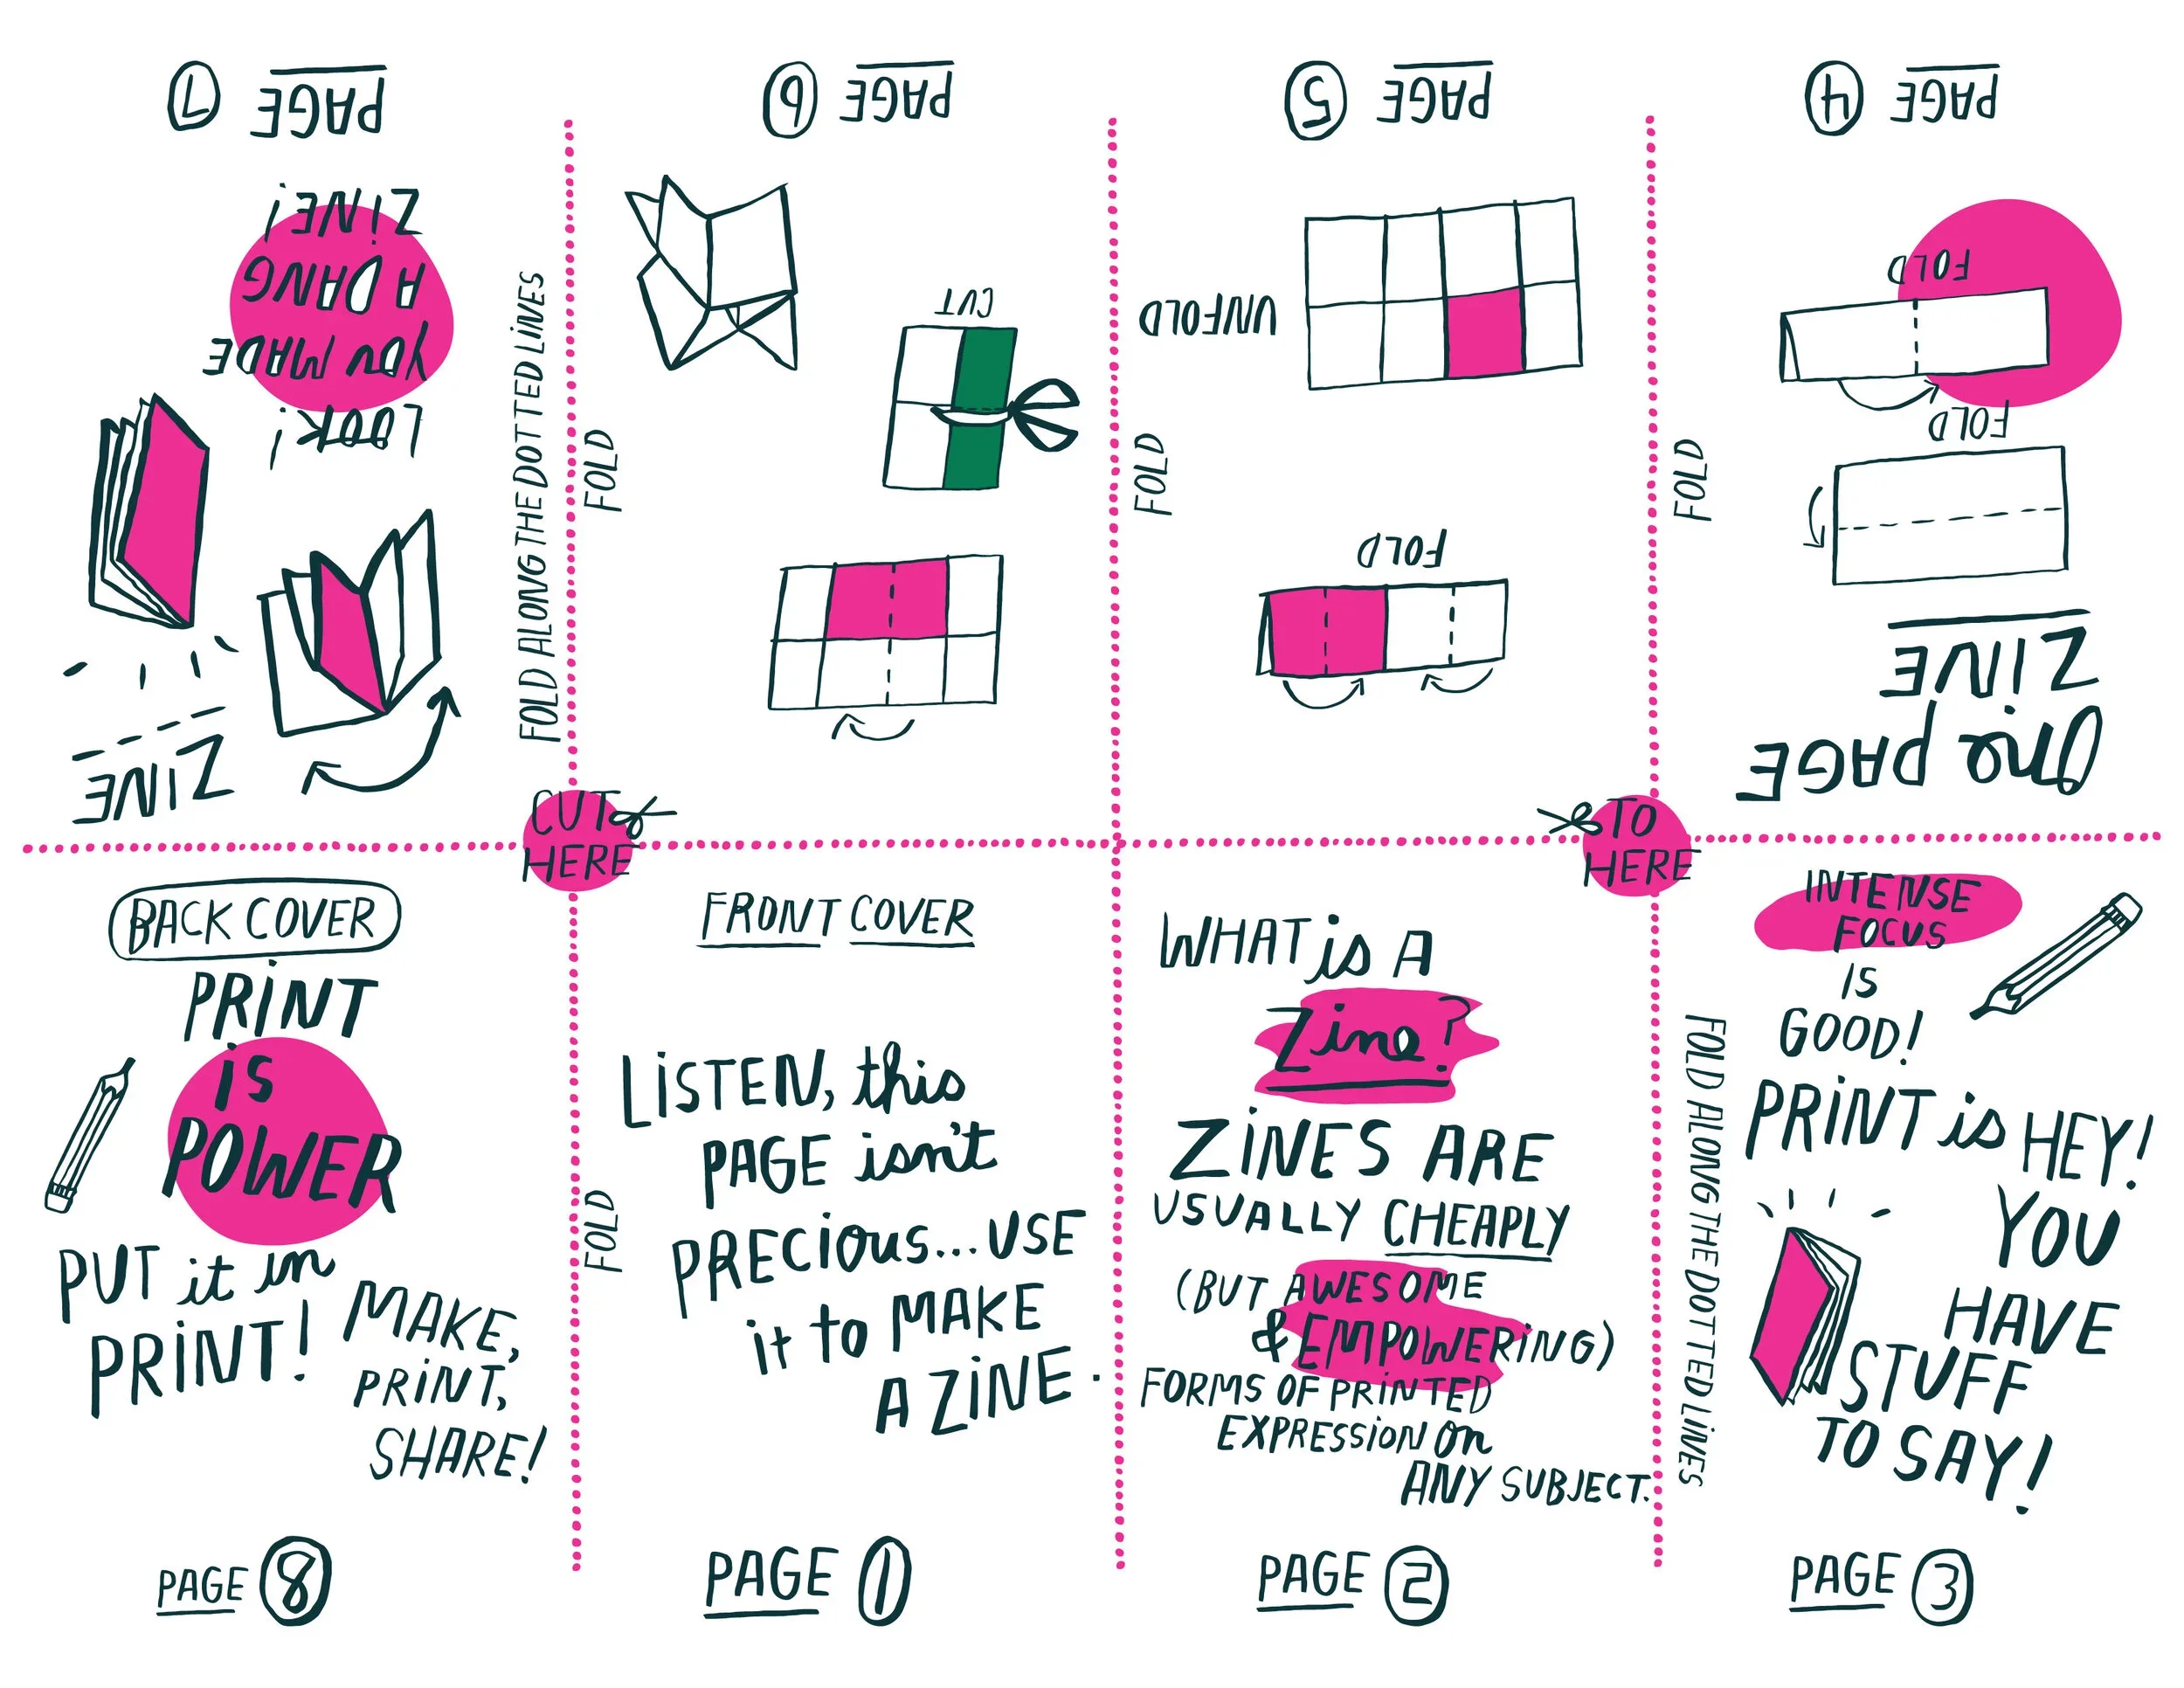 FRONT COVER
LISTEN, this
PAGE isn't
PRECIOUS... USE
it to MAKE
A ZINE.
PAGE 1
WHAT is A
Zine?
ZINES ARE
USUALLY CHEAPLY
(BUT AWESOME
& EMPOWERING)
FORMS OF PRINTED
EXPRESSION On
ANY SUBJECT.
PAGE 2
INTENSE
FOCUS
IS
GOOD!
PRINT is HEY!
YOU
HAVE
STUFF
TO SAY!
PAGE 3
One PAGE
ZINE
FOLD
FOLD
PAGE 4
FOLD
UNFOLD
PAGE 5
CUT
PAGE 6
ZINE
LOOK!
YOU MADE
A DANG
ZINE!
PAGE 7
BACK COVER
PRINT
is
POWER
PUT it in
PRINT!
MAKE,
PRINT,
SHARE!
PAGE 8
FOLD ALONG THE DOTTED LINES
FOLD
FOLD
FOLD
CUT
HERE
TO
HERE
FOLD
FOLD ALONG THE DOTTED LINES